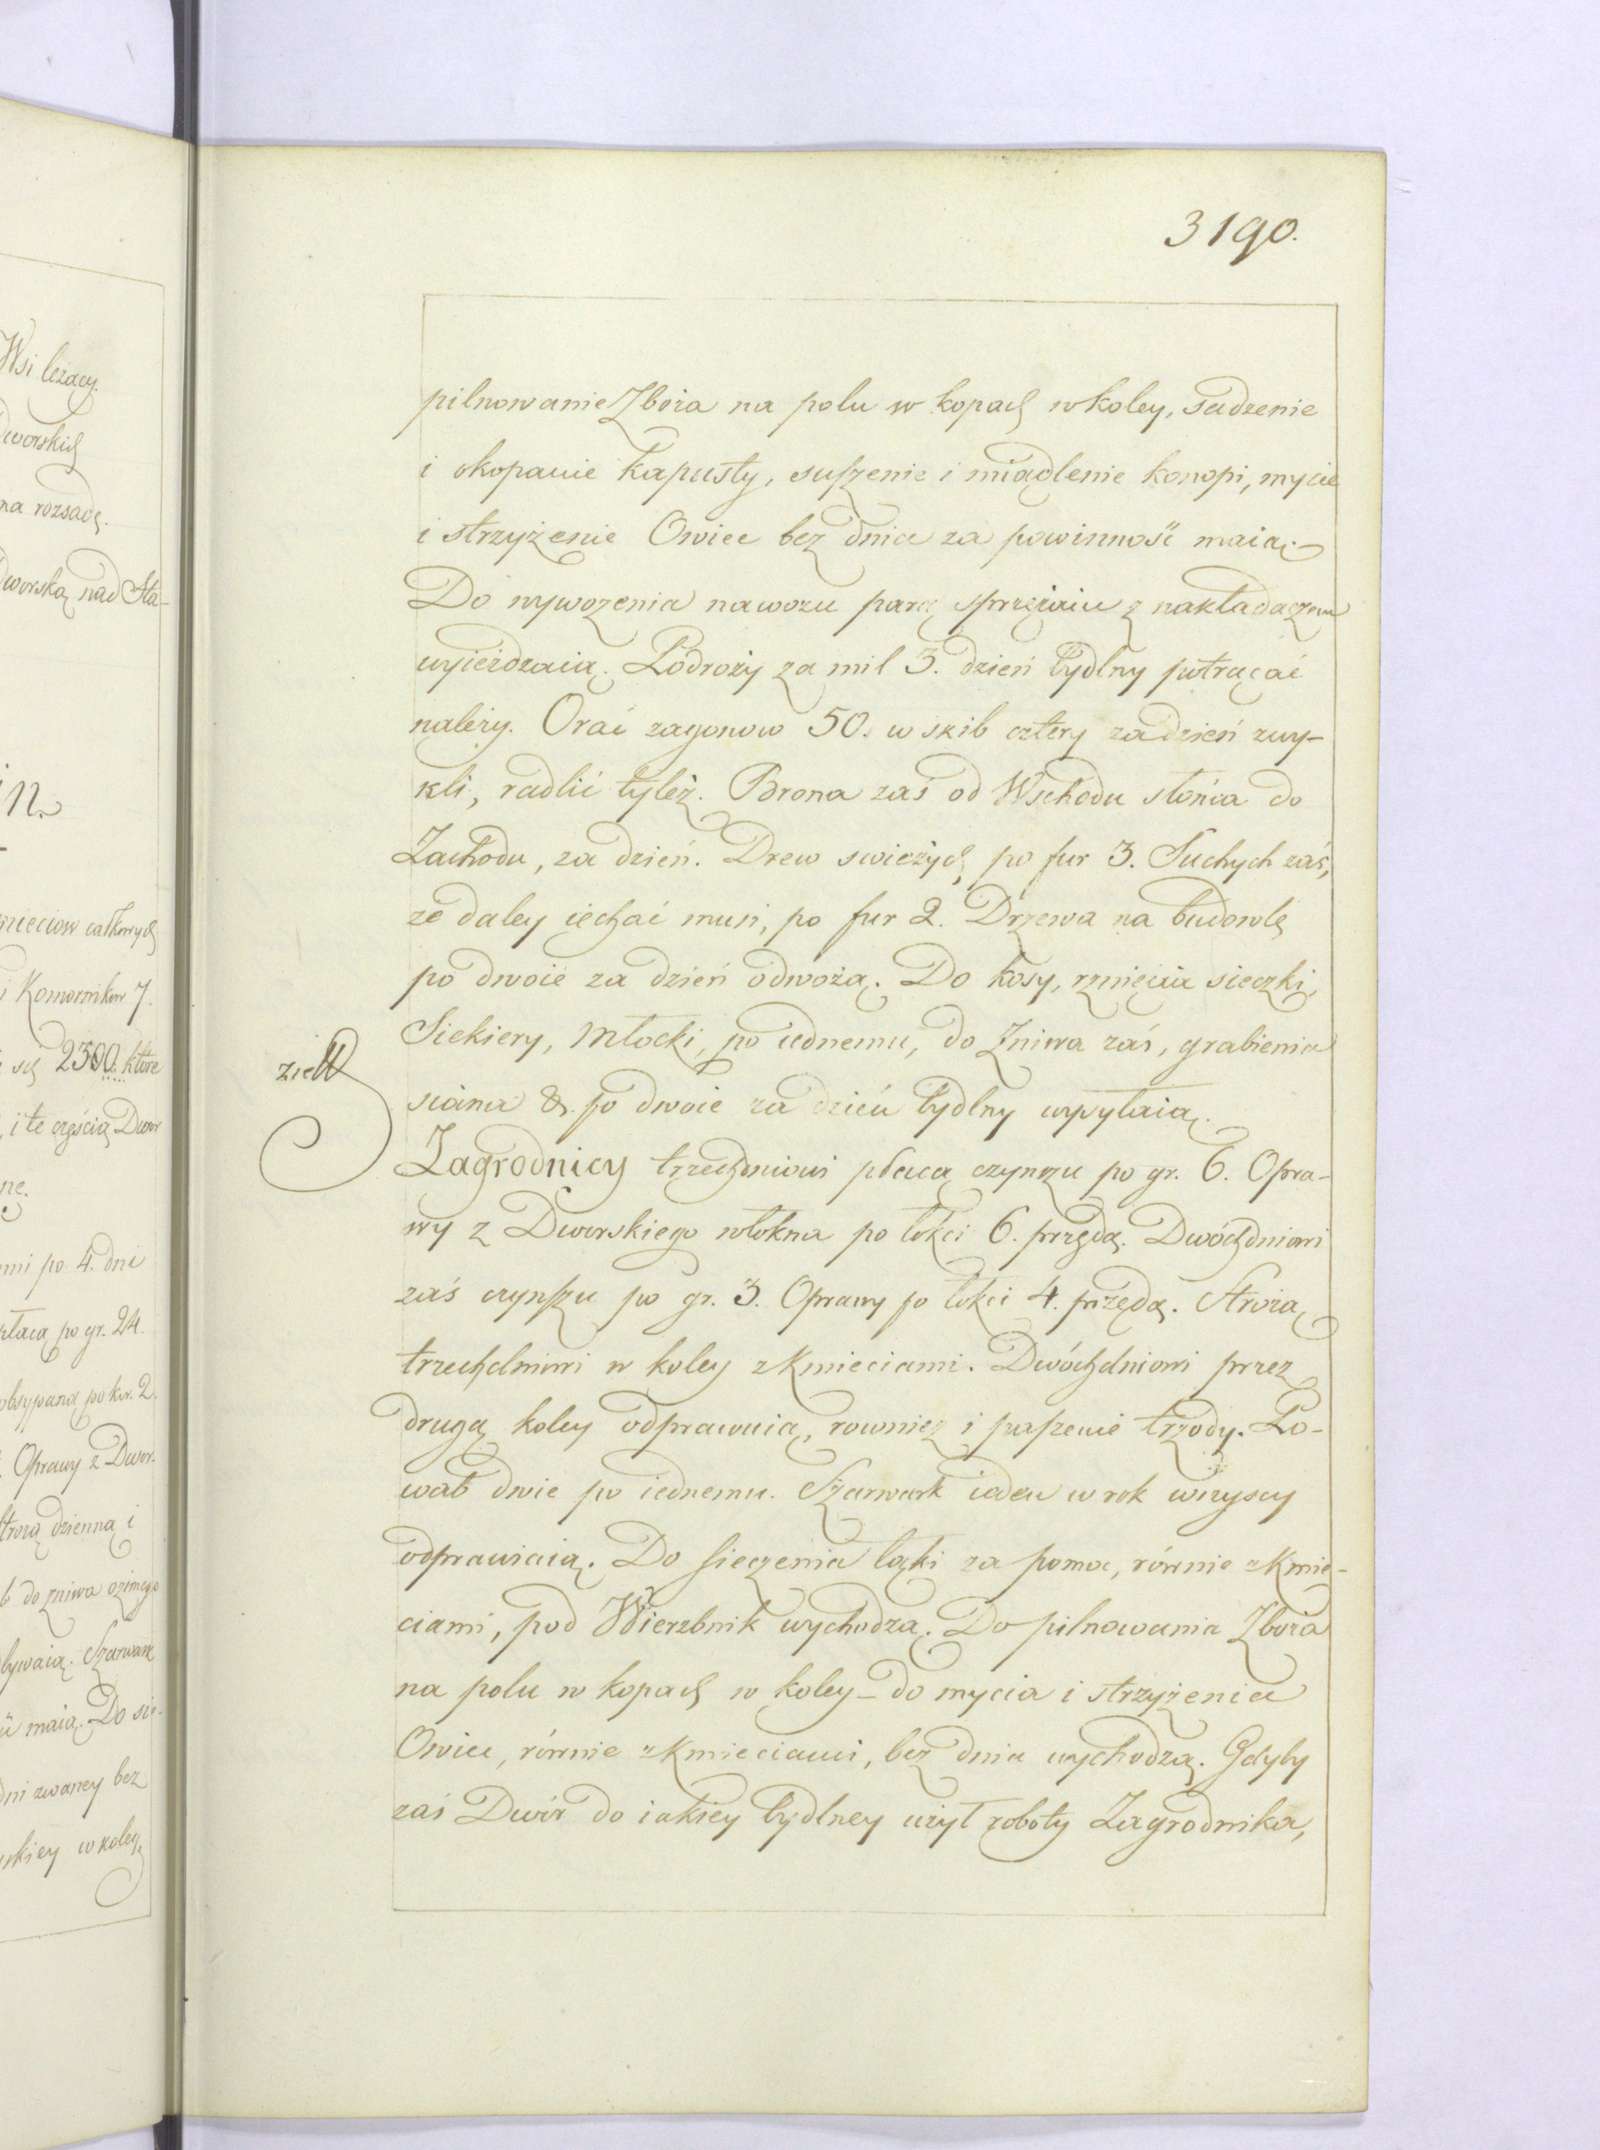 3190.
pilnowanie Zboża na polu w kopach w koley, sadzenie
i okopanie kapusty, suszenie i miądlenie konopi, mycie
i strzyżenie Owiec bez dnia za powinność maią.
Do wywozenia nawozu parą sprzężaiu z nakładaczem
wyieżdzaią. Podroży za mil 3. dzień tydlny potrącać
należy. Orać zagonow 50. w skib cztery za dzień zwy-
kli, radlić tyleż. Brona zaś od Wschodu słońca do
Zachodu, za dzień. Drew swieżych po fur 3. Suchych zaś,
ze daley iechać musi, po fur 2. Drzewa na budowlę
po dwoie za dzień odwożą. Do kosy, rznięcia sieczki,
Siekiery, Młocki, po iednemu, do Żniwa zaś, grabienia
siana &. po dwoie za dzień tydlny wysyłaią.
Zagrodnicy trzechdniowi płacą czynszu po gr. 6. Opra-
wy z Dworskiego włokna po łokci 6. przędą. Dwóchdniowi
zaś czynszu po gr. 3. Oprawy po łokci 4. przędą. Strożą
trzechdniowi w koley z Kmieciami. Dwóchdniowi przez
drugą koley odprawuią, rowniez i paszenie trzody. Po-
wab dwie po iednemu. Szarwark ieden w rok wszyscy
odprawiaią. Do sieczenia łąki za pomoc, równie z Kmie-
ciami, pod Wierzbnik wychodzą. Do pilnowania Zboża
na polu w kopach w koley – do mycia i strzyżenia
Owiec, równie z Kmieciami, bez dnia wychodzą. Gdyby
zaś Dwór do iakiey tydlney użył roboty Zagrodnika,
Wsi leżący.
dworskich
na rozsadę.
dworską nad Sta-
in.
mieciow całkowych
i Komornikow 7.
są 2300. które
i te częścią Dwor
ne.
mi po 4. dni
płacą po gr. 24.
obsypana po kor. 2.
Oprawy z Dwor.
strożą dzienną i
b do zniwa ozimego
bywaią. Szarwark
ü maią. Do sie-
dni zwaney bez
rskiey w koley,